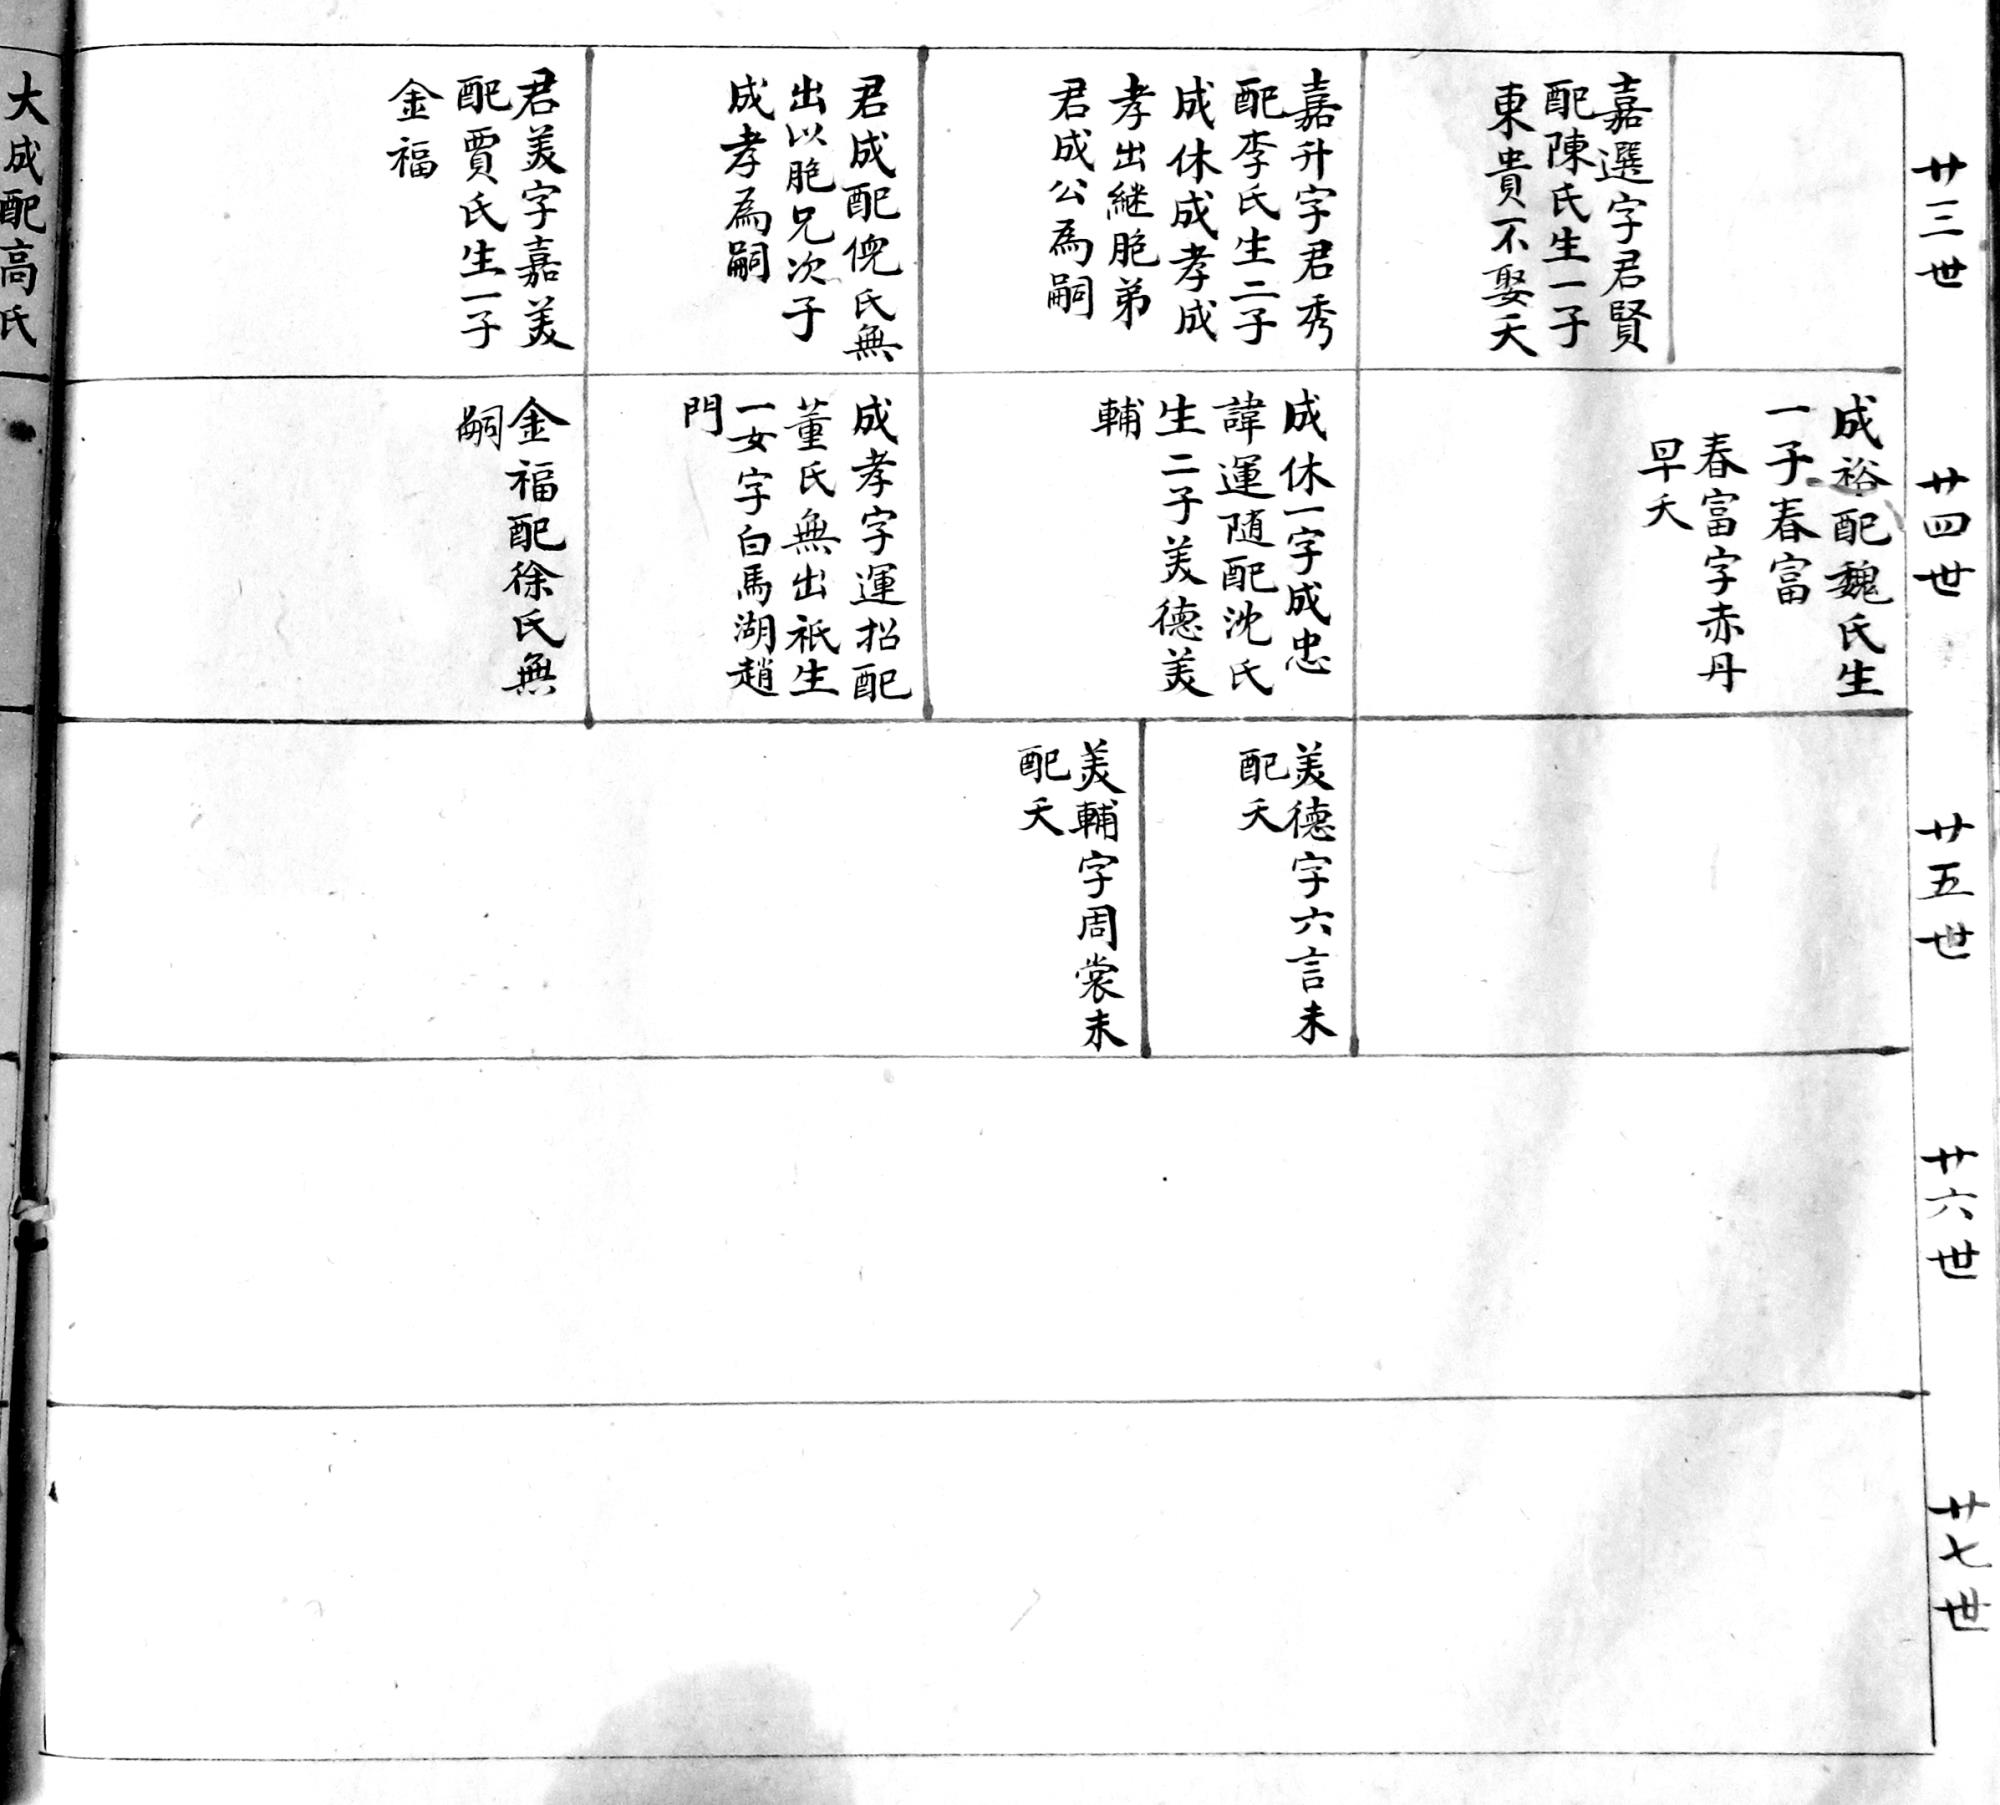 廿三世
嘉選字君賢
配陳氏生一子
東貴不娶夭
嘉升字君秀
配李氏生二子
成休成孝成
孝出継胞弟
君成公為嗣
君成配倪氏無
出以胞兄次子
成孝為嗣
君美字嘉美
配賈氏生一子
金福
廿四世
成裕配魏氏生
一子春富
春富字赤丹
早夭
成休一字成忠
諱運随配沈氏
生二子美德美
輔
成孝字運招配
董氏無出祇生
一女字白馬湖趙
門
金福配徐氏無
嗣
廿五世
美德字六言未
配夭
美輔字周裳未
配夭
廿六世
廿七世
大成配高氏